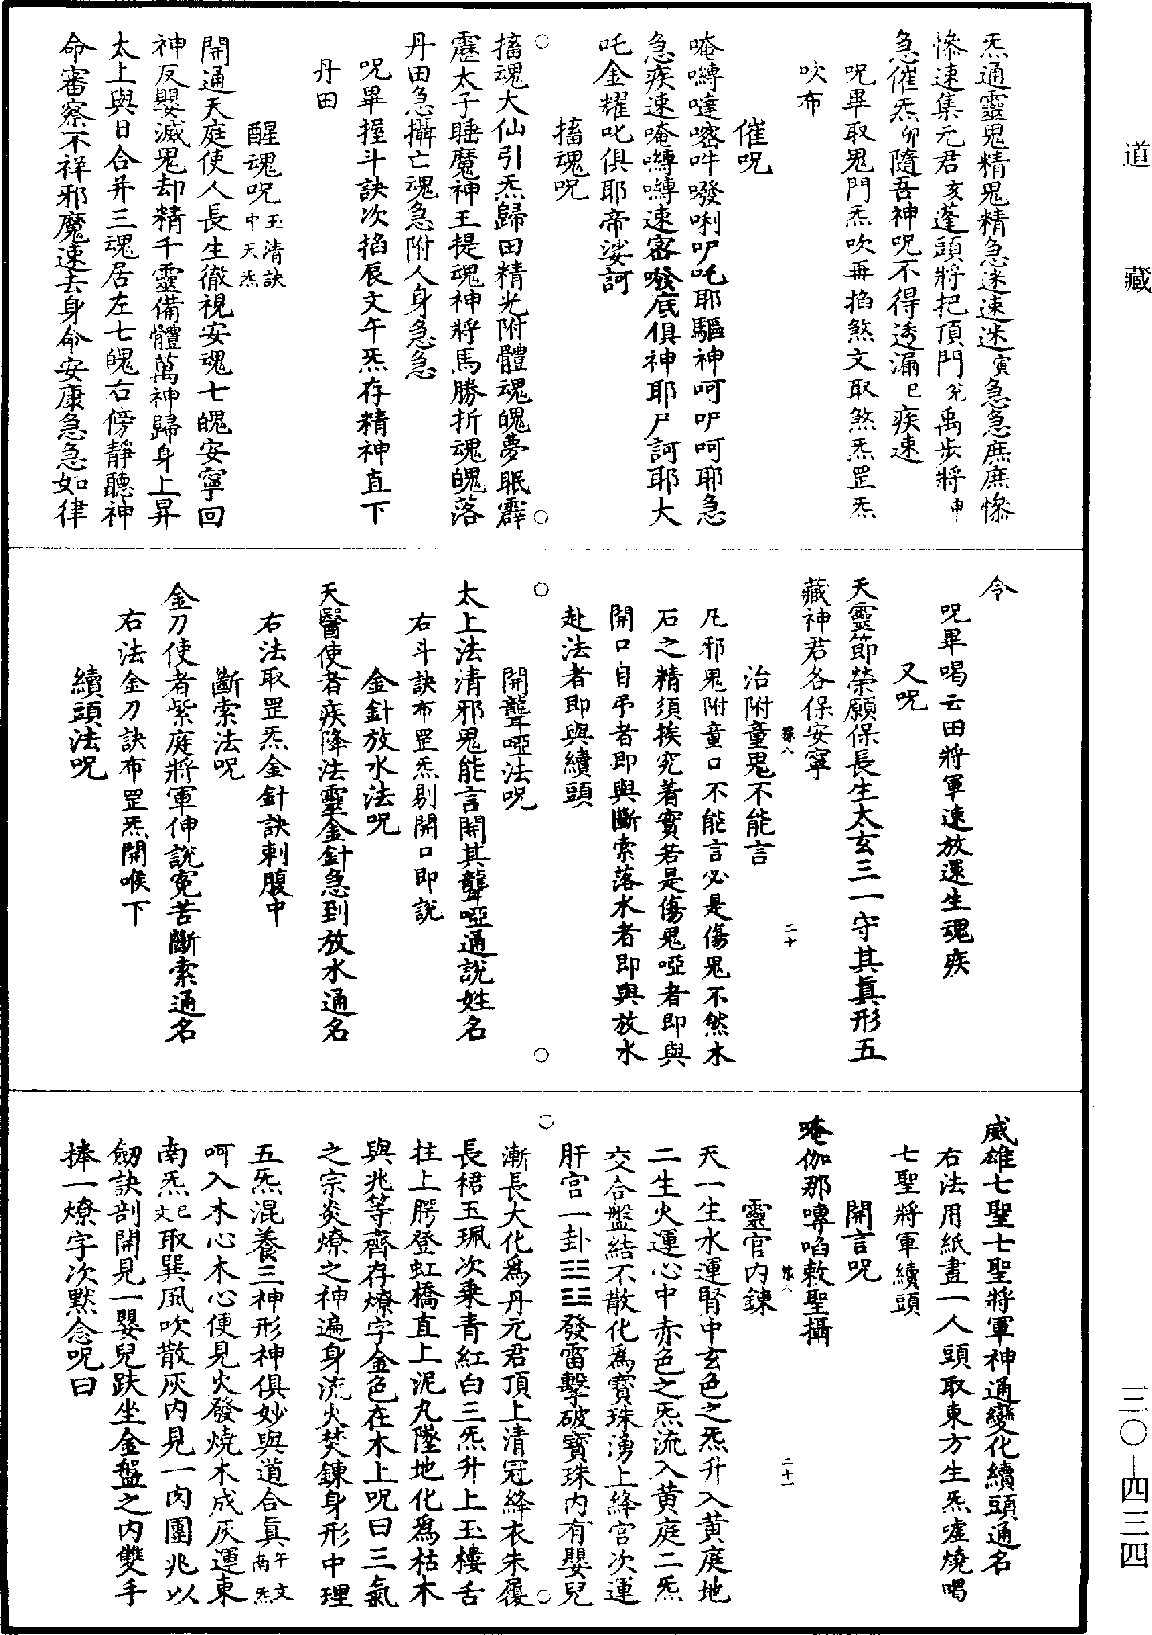 道藏
炁通靈鬼精鬼精急迷速迷寅急急庶庶慘
慘速集元君亥蓬頭將把頂門兊禹步將申
急催炁卯隨吾神呪不得透漏巳疾速
呪畢取鬼門炁吹再掐煞文取煞炁罡炁
吹布
催呪
唵嚩噠㗭吽發唎吖吒耶驅神呵吖呵耶急
急疾速唵嚩嚩速㗭發底俱神耶尸訶耶大
吒金耀叱俱耶帝娑訶
搐魂呪
搐魂大仙引炁歸田精光附體魂魄夢眠霹
靂太子睡魔神王提魂神將馬勝折魂魄落
丹田急攝亡魂急附人身急急
呪畢握斗訣次掐辰文午炁存精神直下
丹田
醒魂呪玉清訣中天炁
開通天庭使人長生徹視安魂七魄安寧回
神反嬰滅鬼却精千靈備體萬神歸身上昇
太上與日合并三魂居左七魄右傍靜聽神
命審察不祥邪魔速去身命安康急急如律
令
呪畢喝云田將軍速放還生魂疾
又呪
天靈節榮願保長生太玄三一守其眞形五
藏神君各保安寧
二十
治附童鬼不能言
凡邪鬼附童口不能言必是傷鬼不然木
石之精須挨究着實若是傷鬼啞者即與
開口自吊者即與斷索落水者即與放水
赴法者即與續頭
開聾啞法呪
太上法清邪鬼能言開其聾啞通說姓名
右斗訣布罡炁剔開口即說
金針放水法呪
天醫使者疾降法靈金針急到放水通名
右法取罡炁金針訣刺腹中
斷索法呪
金刀使者紫庭將軍伸說寃苦斷索通名
右法金刀訣布罡炁開喉下
續頭法呪
威雄七聖七聖將軍神通變化續頭通名
右法用紙畫一人頭取東方生炁噓燒喝
七聖將軍續頭
開言呪
唵伽那嚩㗖敕聖攝
二十一
靈官内鍊
天一生水運腎中玄色之炁升入黄庭地
二生火運心中赤色之炁流入黄庭二炁
交合盤結不散化爲寳珠湧上絳宫次運
肝宫一卦☳☳發雷擊破寳珠内有嬰兒
漸長大化爲丹元君頂上清冠絳衣朱履
長裙玉珮次乗青紅白三炁升上玉樓舌
拄上腭登虹橋直上泥丸墜地化爲枯木
與兆等齊存燎字金色在木上呪曰三氣
之宗炎燎之神遍身流火焚鍊身形中理
五炁混養三神形神俱妙與道合眞午文南炁
呵入木心木心便見火發燒木成灰運東
南炁巳文取巽風吹散灰内見一肉團兆以
劒訣剖開見一嬰兒趺坐金盤之内雙手
捧一燎字次黙念呪曰
三〇—四二四